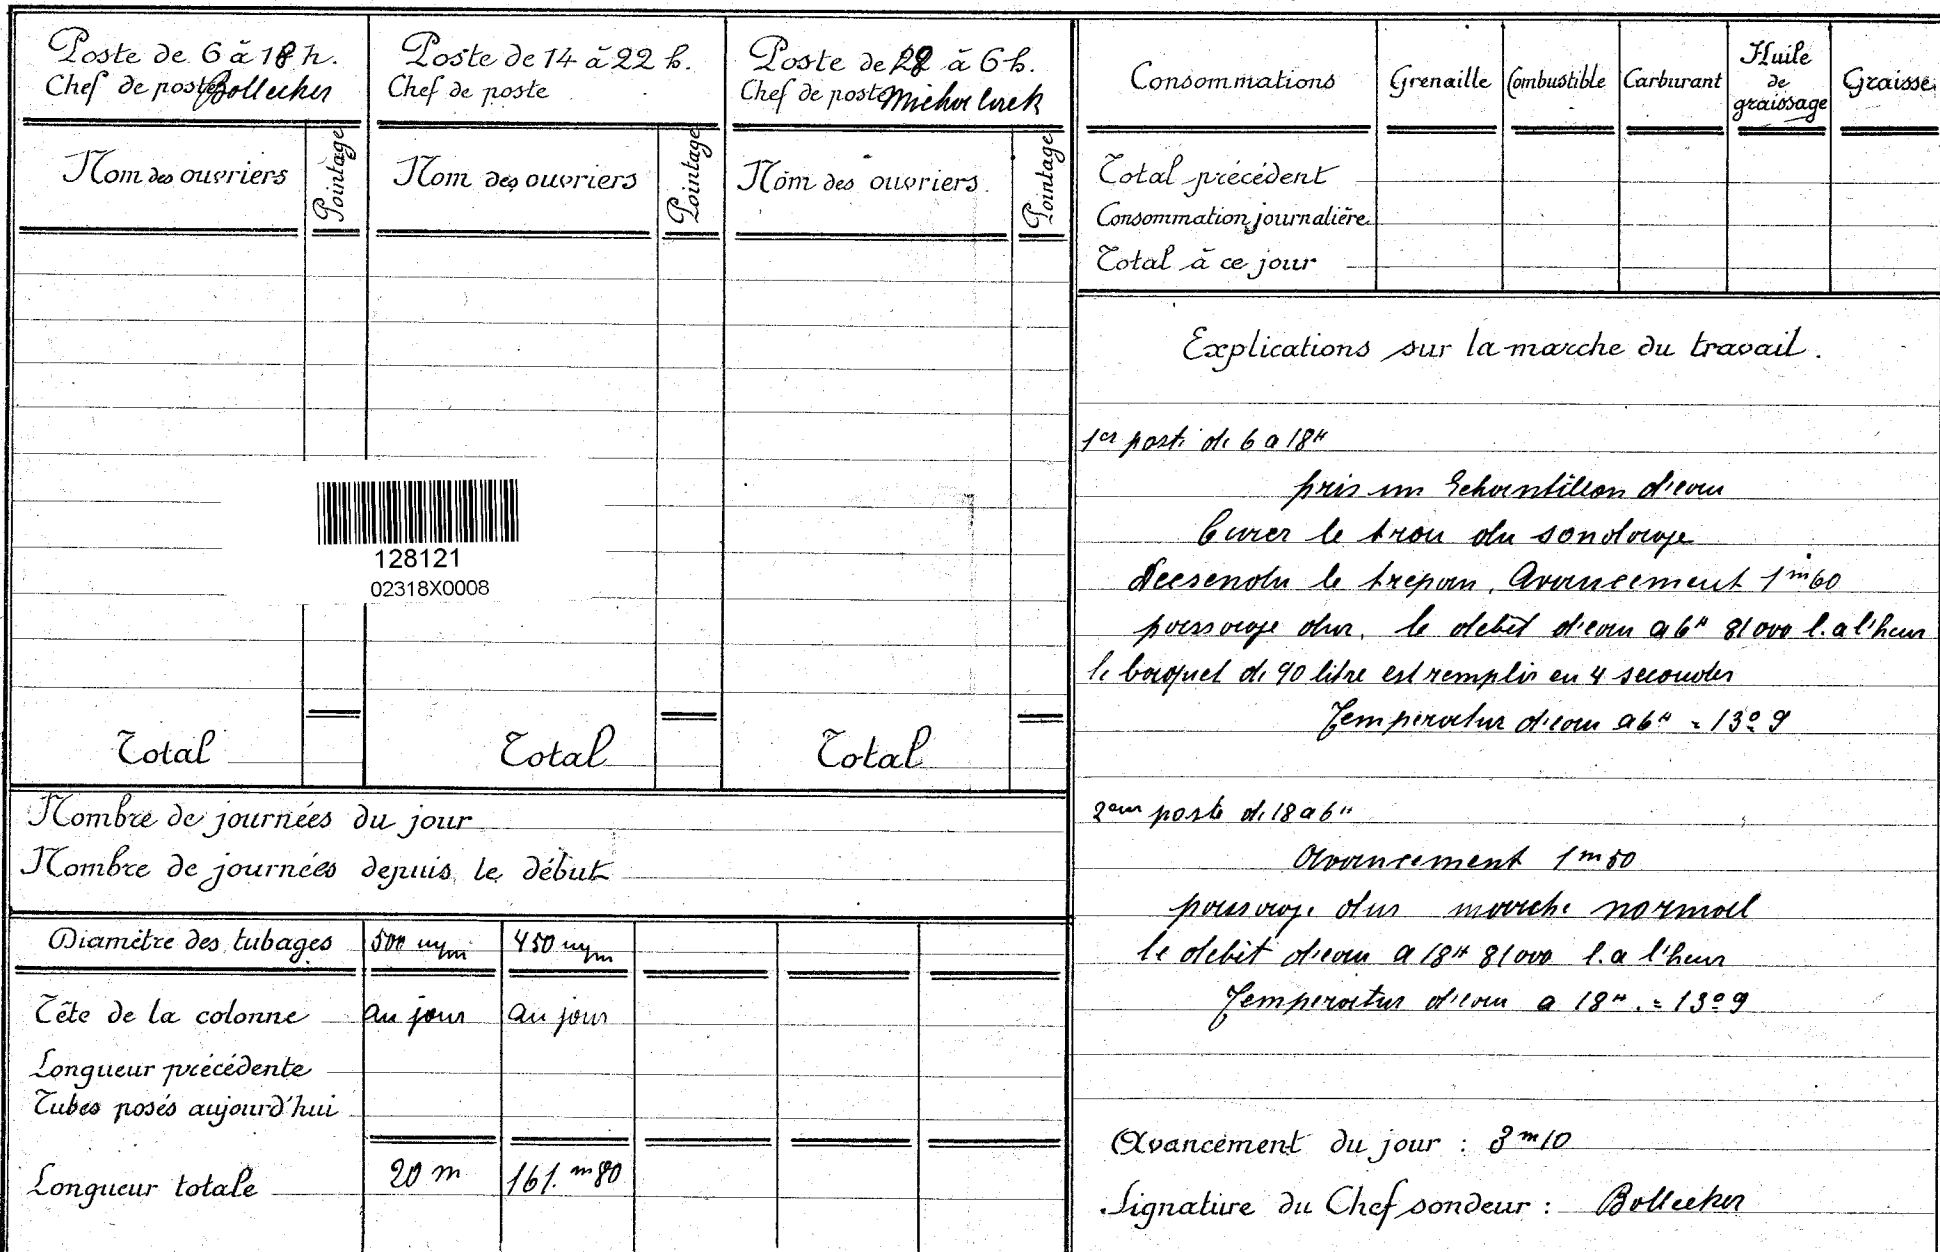 Poste de 6 à 18 h.
Chef de poste Bollecker
Nom des ouvriers
Pointage
Total
Poste de 14 à 22 h.
Chef de poste
Nom des ouvriers
Pointage
Total
Poste de à 6 h.
Chef de poste
Nom des ouvriers
Pointage
Total
128121
02318X0008
Nombre de journées du jour
Nombre de journées depuis le début
Diamètre des tubages 500 m/m 450 m/m
Tête de la colonne au jour au jour
Longueur précédente
Tubes posés aujourd'hui
Longueur totale 20 m 161.m80
Consommations Grenaille Combustible Carburant Huile de graissage Graisse
Total précédent
Consommation journalière
Total à ce jour
Explications sur la marche du travail.
1er poste de 6 a 18H
pris un Echantillon d'eau
Curer le trou du sondage
Decsendu le trepan. Avancement 1m60
passage dur. le debit d'eau a 6H 81000 l. a l'heur
le baquet de 90 litre est remplir en 4 secondes
Temperatur d'eau a 6H = 13°9
2eme poste de 18 a 6H
Avancement 1m50
passage dur marche normal
le debit d'eau a 18H 81000 l. a l'heur
Temperatur d'eau a 18H. = 13°9
Avancement du jour : 3m10
Signature du Chef sondeur : Bollecker